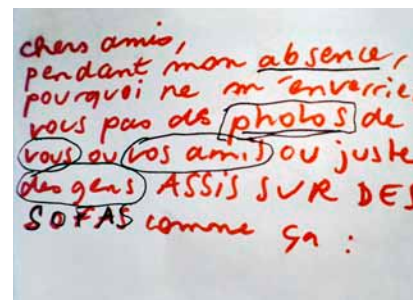 chers amis,
pendant mon absence,
pourquoi ne m'enverrie
vous pas des photos de
vous ou vos amis ou juste
des gens ASSIS SUR DES
SOFAS comme ça :